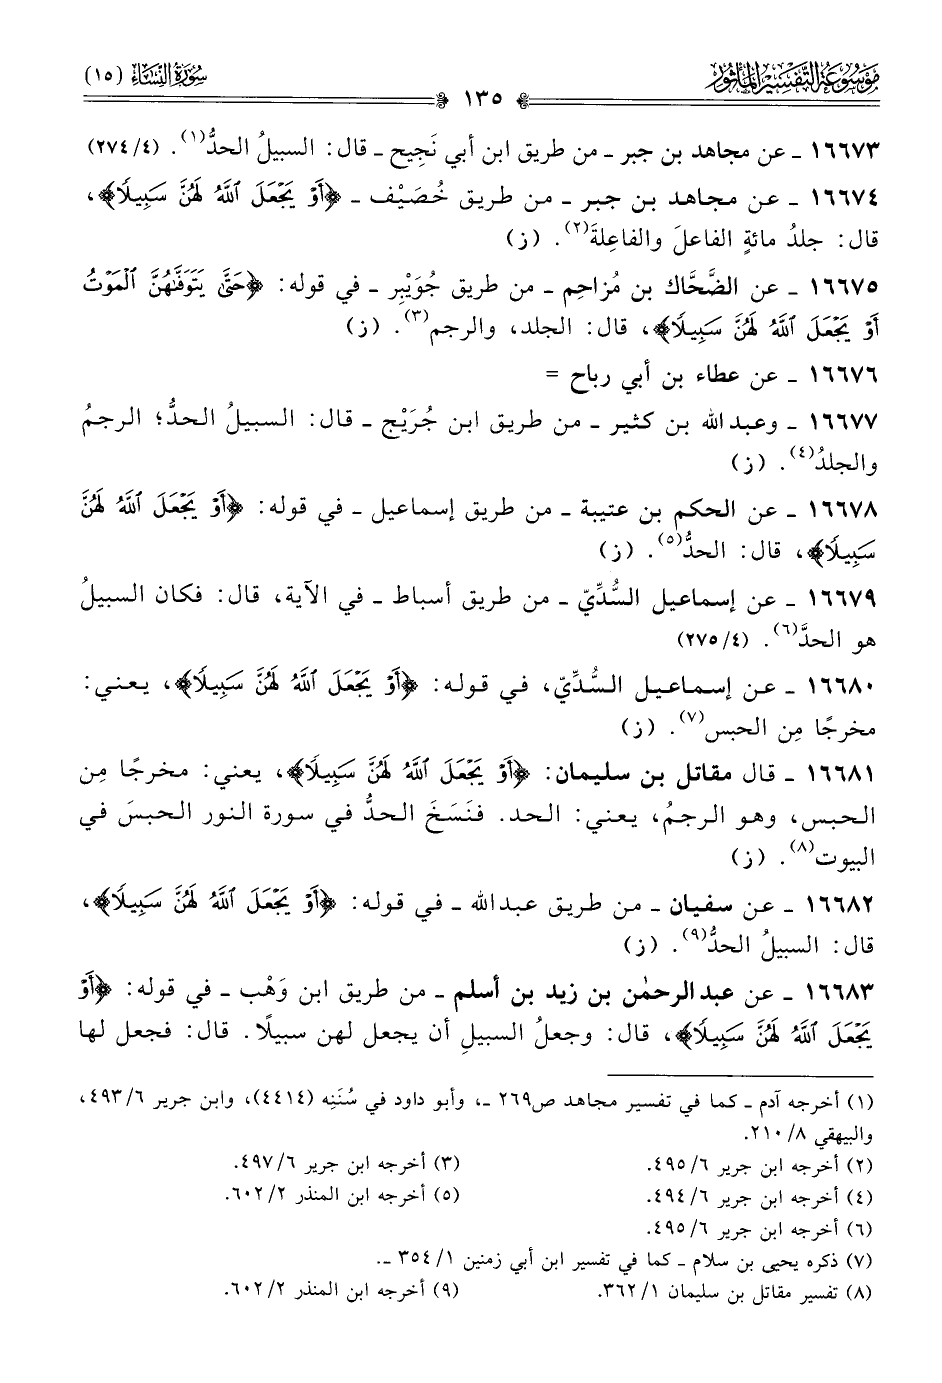 مَوْسُوعَة التَّفْسِير المَأْثُور
١٣٥
سُورَةُ النِّسَاءِ (١٥)
١٦٦٧٣ ـ عن مجاهد بن جبر ـ من طريق ابن أبي نَجِيح ـ قال: السبيلُ الحدُّ(١). (٢٧٤/٤)
١٦٦٧٤ ـ عن مجاهد بن جبر ـ من طريق خُصَيْف ـ ﴿أَوْ يَجْعَلَ ٱللَّهُ لَهُنَّ سَبِيلًا﴾،
قال: جلدُ مائةٍ الفاعلَ والفاعِلةَ(٢). (ز)
١٦٦٧٥ ـ عن الضَّحَّاك بن مُزاحِم ـ من طريق جُوَيْبِر ـ في قوله: ﴿حَتَّىٰ يَتَوَفَّىٰهُنَّ ٱلْمَوْتُ
أَوْ يَجْعَلَ ٱللَّهُ لَهُنَّ سَبِيلًا﴾، قال: الجلد، والرجم(٣). (ز)
١٦٦٧٦ ـ عن عطاء بن أبي رباح =
١٦٦٧٧ ـ وعبد الله بن كثير ـ من طريق ابن جُرَيْج ـ قال: السبيلُ الحدُّ؛ الرجمُ
والجلدُ(٤). (ز)
١٦٦٧٨ ـ عن الحكم بن عتيبة ـ من طريق إسماعيل ـ في قوله: ﴿أَوْ يَجْعَلَ ٱللَّهُ لَهُنَّ
سَبِيلًا﴾، قال: الحدُّ(٥). (ز)
١٦٦٧٩ ـ عن إسماعيل السُّدِّيّ ـ من طريق أسباط ـ في الآية، قال: فكان السبيلُ
هو الحدَّ(٦). (٢٧٥/٤)
١٦٦٨٠ ـ عن إسماعيل السُّدِّيّ، في قوله: ﴿أَوْ يَجْعَلَ ٱللَّهُ لَهُنَّ سَبِيلًا﴾، يعني:
مخرجًا مِن الحبس(٧). (ز)
١٦٦٨١ ـ قال مقاتل بن سليمان: ﴿أَوْ يَجْعَلَ ٱللَّهُ لَهُنَّ سَبِيلًا﴾، يعني: مخرجًا مِن
الحبس، وهو الرجمُ، يعني: الحد. فنَسَخَ الحدُّ في سورة النور الحبسَ في
البيوت(٨). (ز)
١٦٦٨٢ ـ عن سفيان ـ من طريق عبد الله ـ في قوله: ﴿أَوْ يَجْعَلَ ٱللَّهُ لَهُنَّ سَبِيلًا﴾،
قال: السبيلُ الحدُّ(٩). (ز)
١٦٦٨٣ ـ عن عبد الرحمٰن بن زيد بن أسلم ـ من طريق ابن وَهْب ـ في قوله: ﴿أَوْ
يَجْعَلَ ٱللَّهُ لَهُنَّ سَبِيلًا﴾، قال: وجعلُ السبيلِ أن يجعل لهن سبيلًا. قال: فجعل لها
(١) أخرجه آدم ـ كما في تفسير مجاهد ص٢٦٩ ـ، وأبو داود في سُنَنِه (٤٤١٤)، وابن جرير ٤٩٣/٦،
والبيهقي ٢١٠/٨.
(٢) أخرجه ابن جرير ٤٩٥/٦.
(٣) أخرجه ابن جرير ٤٩٧/٦.
(٤) أخرجه ابن جرير ٤٩٤/٦.
(٥) أخرجه ابن المنذر ٦٠٢/٢.
(٦) أخرجه ابن جرير ٤٩٥/٦.
(٧) ذكره يحيى بن سلام ـ كما في تفسير ابن أبي زمنين ٣٥٤/١ ـ.
(٨) تفسير مقاتل بن سليمان ٣٦٢/١.
(٩) أخرجه ابن المنذر ٦٠٢/٢.